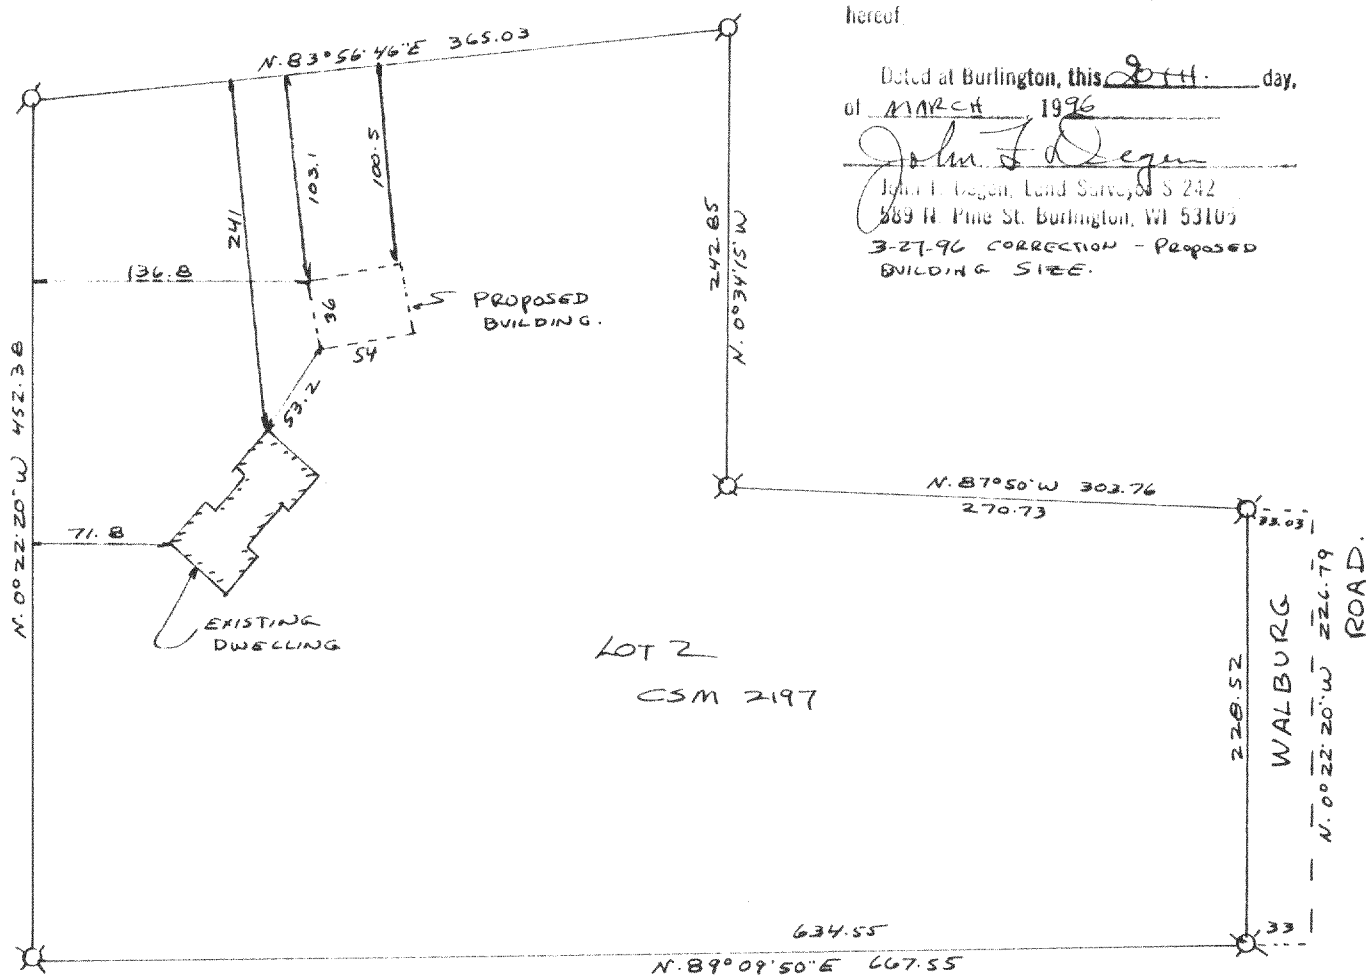 hereof
Dated at Burlington, this 20TH. day,
of MARCH 1996
John F Degen
John F. Degen, Land Surveyor S-242
589 N. Pine St. Burlington, WI 53105
3-27-96 CORRECTION - PROPOSED
BUILDING SIZE.
N. 83°56'46"E 365.03
241
103.1
100.5
136.8
36
54
PROPOSED
BUILDING.
53.2
242.85
N. 0°34'15"W
N. 0°22'20"W 452.38
71.8
EXISTING
DWELLING
N. 87°50'W 303.76
270.73
33.03
LOT 2
CSM 2197
228.52
WALBURG
ROAD.
N. 0°22'20"W 226.79
634.55
33
N. 89°09'50"E 667.55